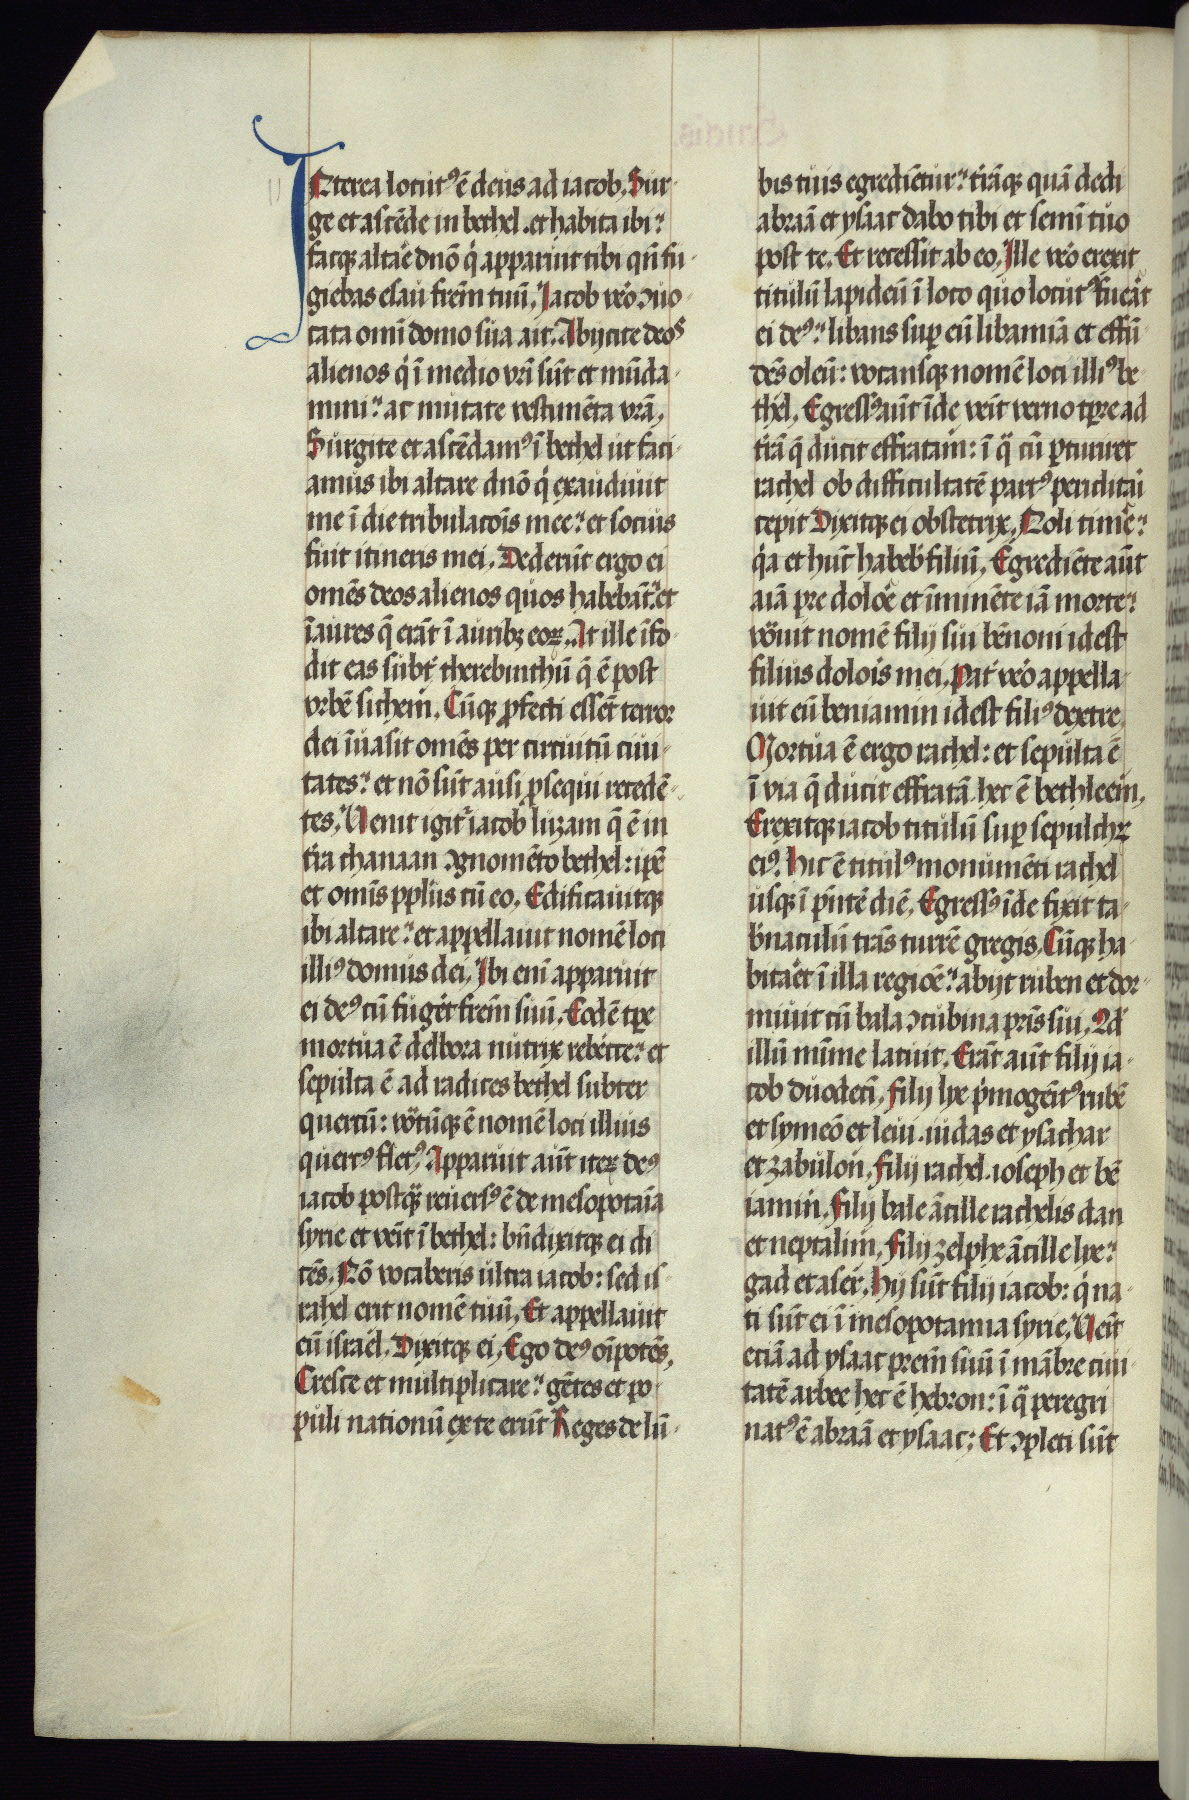 INterea locut᷒ ē deus ad iacob. Sur
ge et ascēde in bethel. et habita ibi:
facq; altaē dn̄o q̇ apparuit tibi qn̄ fu
giebas esau frēm tuū. Iacob v̄o ɔuo
cata omī domo sua ait. Abijcite deos
alienos q̇ ī medio vr̄i sūt et mūda
mini: ac mutate vestimēta vrā.
Surgite et ascēdam᷒ ī bethel ut faci
amus ibi altare dn̄o q̇ exaudiuit
me ī die tribulacōis mee: et socius
fuit itineris mei. Dederūt ergo ei
omēs deos alienos quos habebāt: et
īaures q̄ erāt ī aurib; eoꝝ. At ille īfo
dit eas subt̄ therebinthū q̄ ē post
vrbē sichem. Cūq; ꝓfecti essēt terror
dei īuasit omēs per circuitū ciui
tates: et nō sūt ausi ꝑsequi recedē
tes. Uenit igit᷑ iacob luzam q̄ ē in
tr̄a chanaan ɔgnomēto bethel: ip̄e
et omīs pplūs cū eo. Edificauitq;
ibi altare: et appellauit nomē loci
illi᷒ domus dei. Ibi enī apparuit
ei de᷒ cū fuḡet frēm suū. Eodē tp̄e
mortua ē delbora nutrix rebecce: et
sepulta ē ad radices bethel subter
quercū: vocatūq; ē nomē loci illius
querc᷒ flet᷒. Apparuit aūt iteꝝ de᷒
iacob postq̄ reuers᷒ ē de mesopotaīa
syrie et veīt ī bethel: bn̄dixitq; ei di
cēs. Nō vocaberis ultra iacob: sed is
rahel erit nomē tuū. Et appellauit
eū israel. Dixitq; ei. Ego de᷒ oīpotēs.
Cresce et multiplicare: gētes et po
puli nationū ex te erūt Reges de lū
bis tuis egrediētur: tr̄āq; quā dedi
abraā et ysaac dabo tibi et semī tuo
post te. Et recessit ab eo. Ille v̄o erexit
titulū lapideū ī loco quo locut᷒ fuēat
ei de᷒: libans suꝑ eū libamīa et effū
dēs oleū: vocansq; nomē loci illi᷒ be
thel. Egress᷒ aūt īde veīt verno tp̄re ad
tr̄ā q̄ ducit effratam: ī q̄ cū ꝑturiret
rachel ob difficultatē part᷒ periclitai
cepit Dixitq; ei obstetrix. Noli timē:
q̇a et hūc habeb̄ filiū. Egrediēte aūt
aīa pre doloē et īminēte iā morte:
vocauit nomē filij sui bēnoni id est
filius dolois mei. Pat̄ v̄o appella
uit eū beniamin id est fili᷒ dextre
Mortua ē ergo rachel: et sepulta ē
ī via q̄ ducit effratā. hec ē bethleem.
Erexitq; iacob titulū suꝑ sepulchꝝ
ei᷒. Hic ē titul᷒ monumēti rachel
usq; ī p̄ntē diē. Egress᷒ īde fixit ta
b̄naculū trās turrē gregis. Cūq; ha
bitaēt ī illa regioē: abijt ruben et dor
miuit cū bala ɔcubina pr̄is sui. Qd̄
illū mīme latuit. Erāt aūt filij ia
cob duodecī. Filij lye p̄mogēit᷒ rubē
et symeō et leui. iudas et ysachar
et zabulon. Filij rachel. ioseph et bē
iamin. Filij bale ācille rachelis dan
et neptalim. Filij zelphe ācille lye:
gad et aser. Hij sūt filij iacob: q̇ na
ti sūt ei ī mesopotamia syrie. Ueīt
etiā ad ysaac prēm suū ī mābre ciui
tatē arbee hec ē hebron: ī q̄ peregri
nat᷒ ē abraā et ysaac: Et ɔpleti sūt